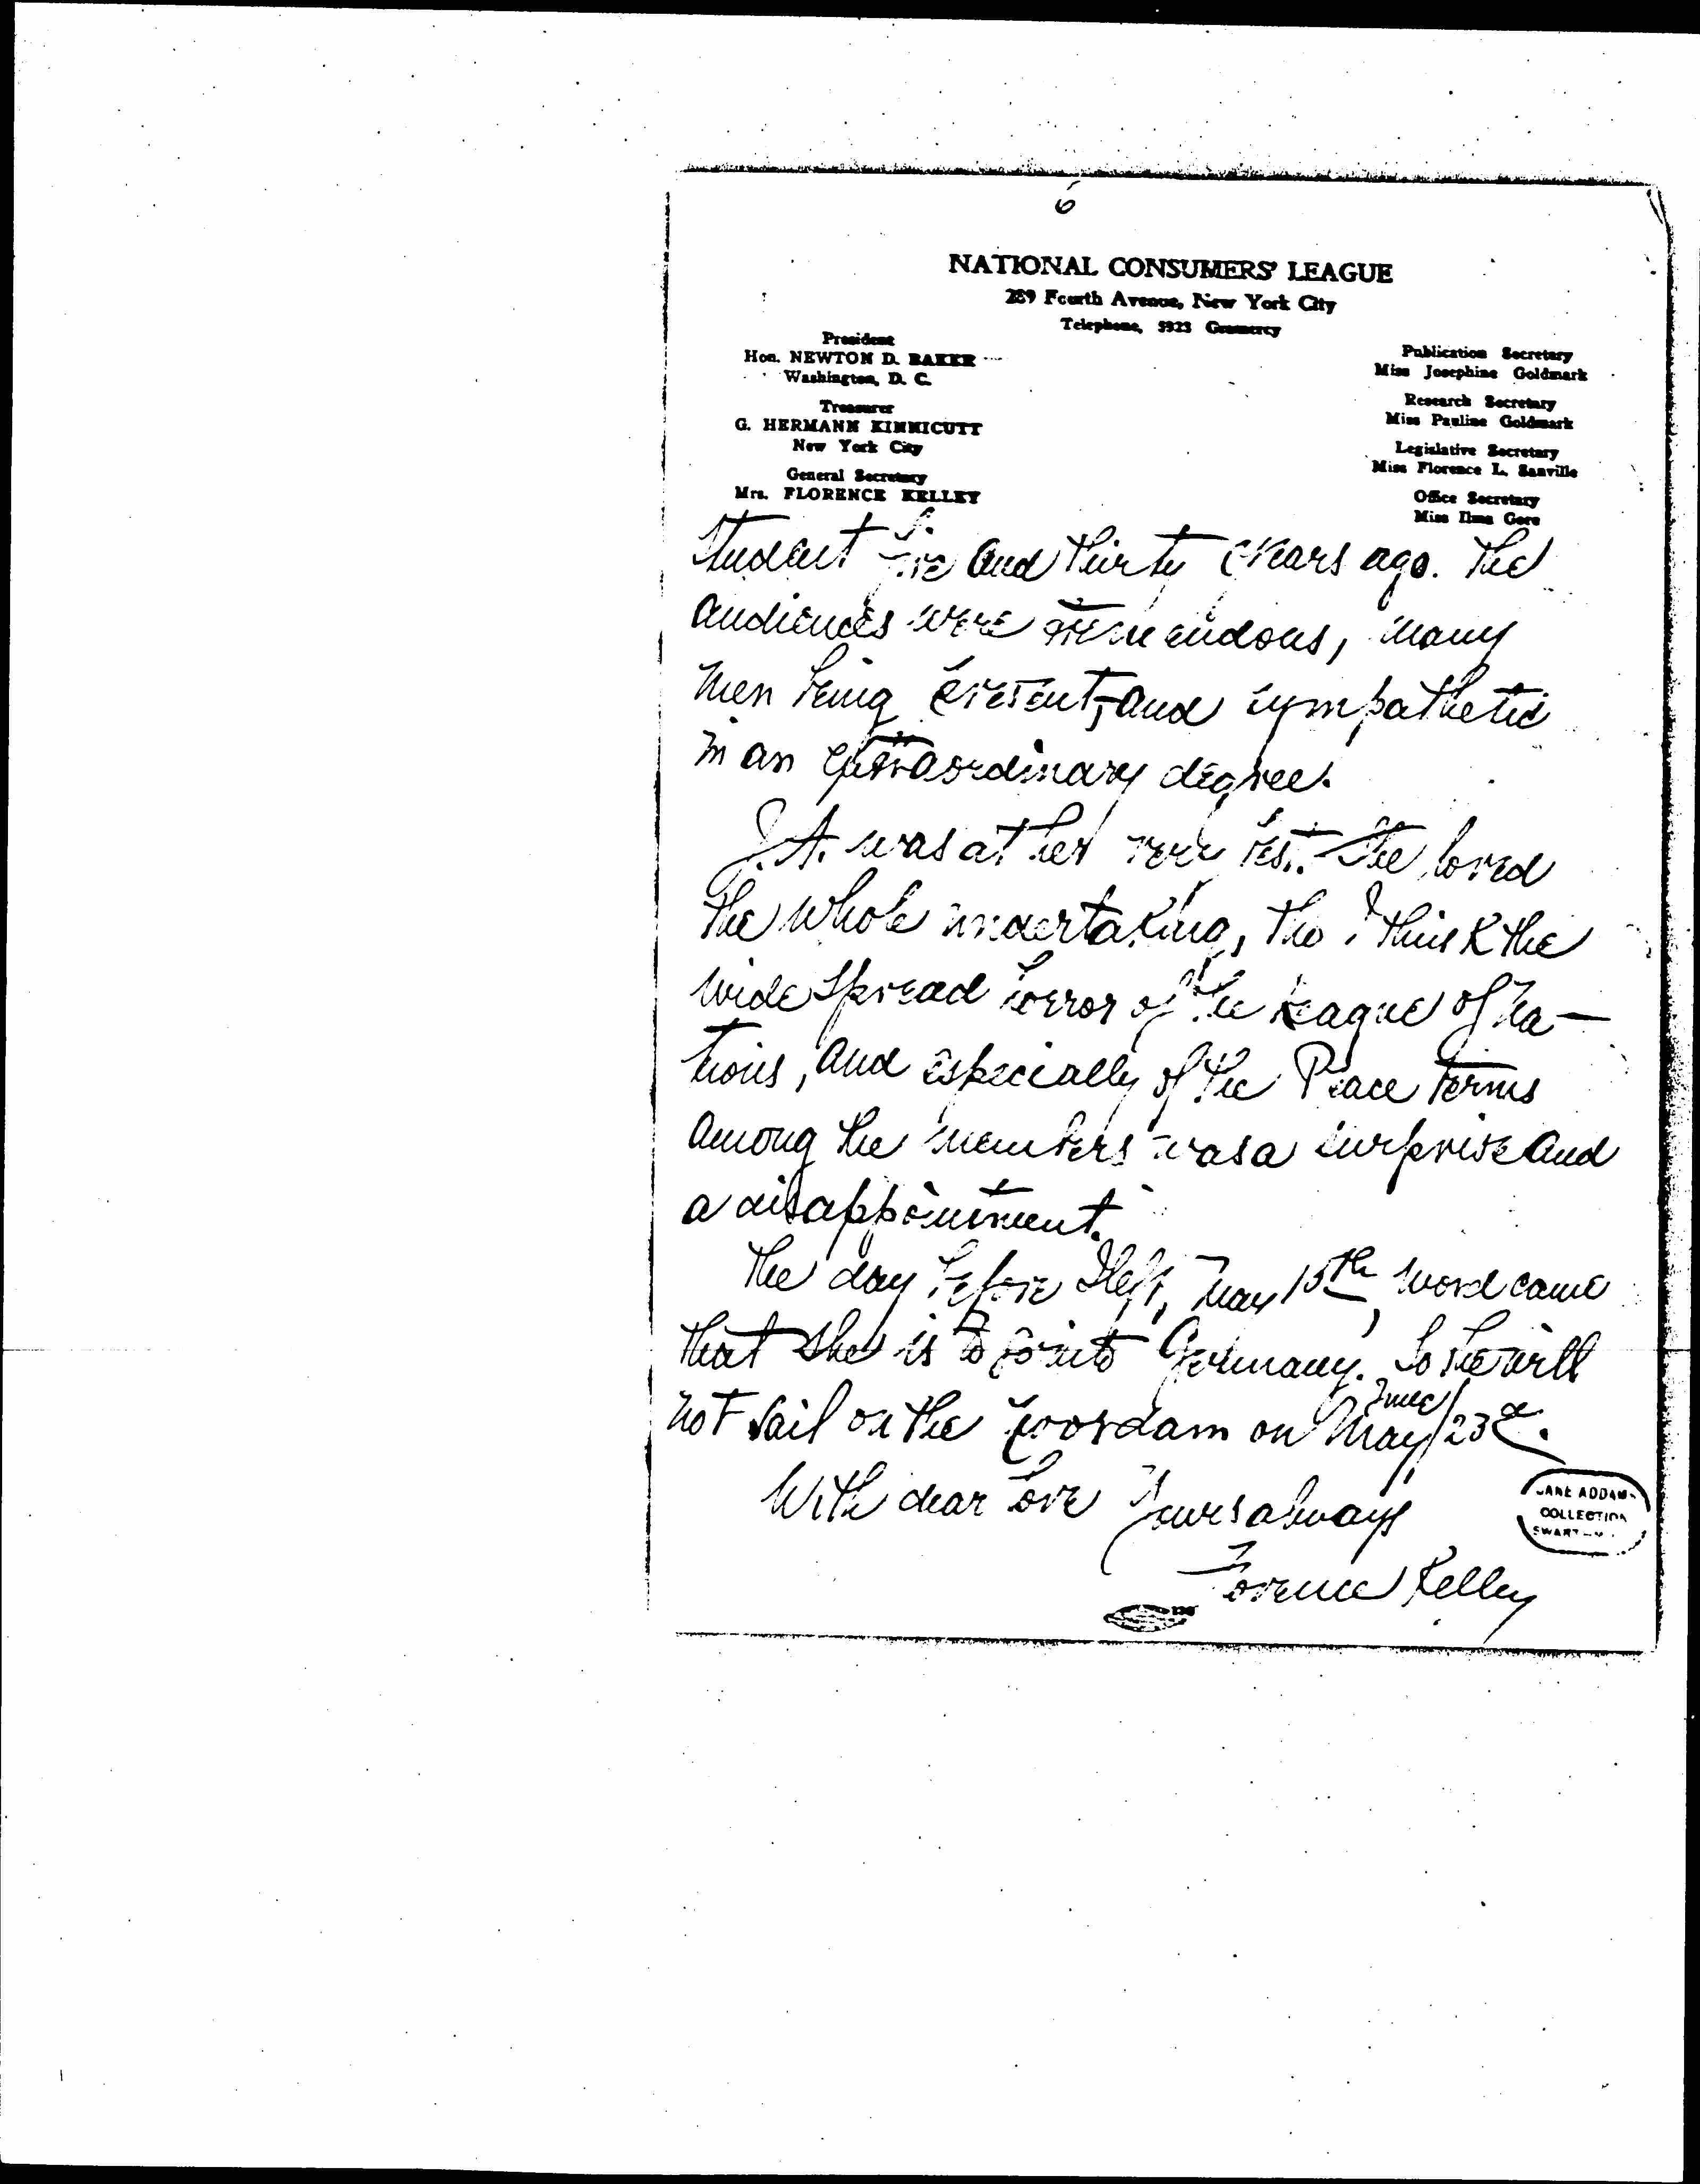 6
NATIONAL CONSUMERS' LEAGUE
289 Fourth Avenue, New York City
Telephone, 5923 Gramercy
President
Hon. NEWTON D. BAKER
Washington, D. C.
Treasurer
G. HERMANN KINNICUTT
New York City
General Secretary
Mrs. FLORENCE KELLEY
Publication Secretary
Miss Josephine Goldmark
Research Secretary
Miss Pauline Goldmark
Legislative Secretary
Miss Florence L. Sanville
Office Secretary
Miss Ilma Gore
student five and thirty years ago. The
audiences were tremendous, many
men being present, and sympathetic
in an extraordinary degree.
J.A. was at her very best. She loved
the whole undertaking, tho I think the
wide spread horror of the League of Na-
tions, and especially of the Peace terms
among the members was a surprise and
a disappointment.
The day before I left, May 15th, word came
that she is to go into Germany. So she will
not sail on the Noordam on May June 23d.
With dear love Yours always
Florence Kelley
JANE ADDAMS
COLLECTION